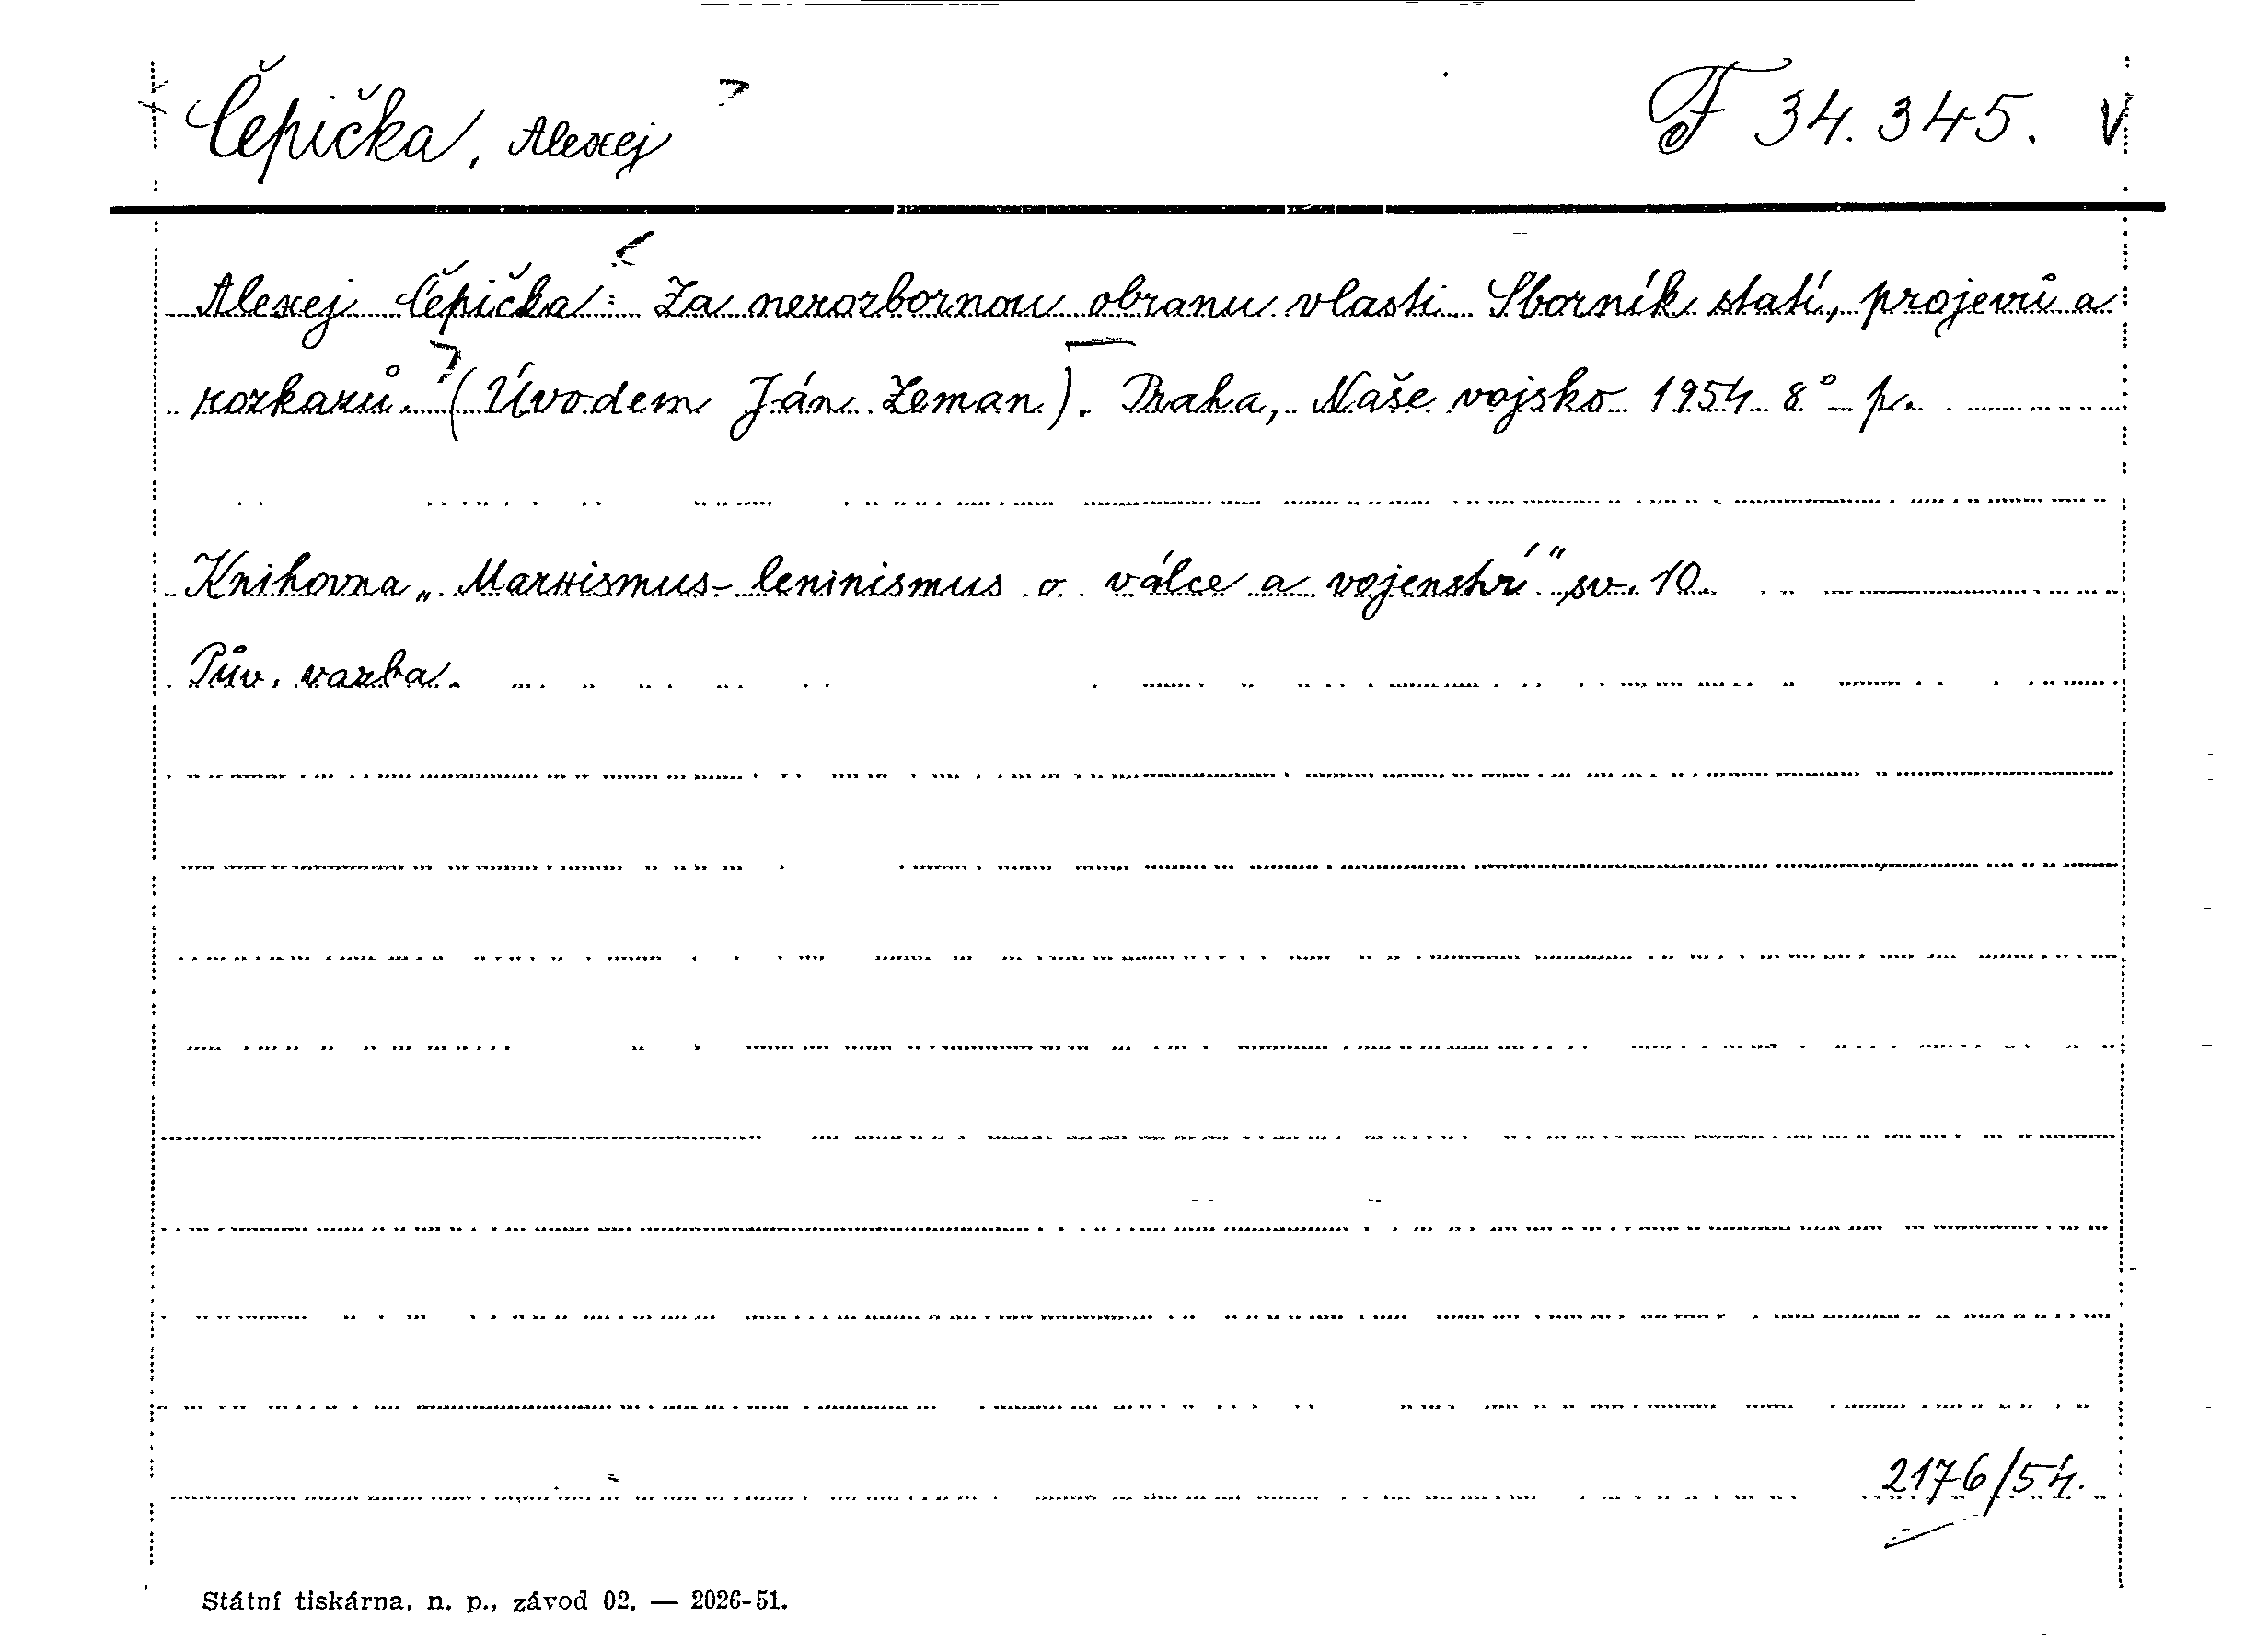 Čepička, Alexej F 34.345. V
Alexej Čepička: Za nerozbornou obranu vlasti. Sborník statí, projevů a
rozkazů. (Úvodem Ján Zeman). Praka, Naše vojsko 1954 8° - p.
Knihovna „Marxismus-leninismus o válce a vojenství" sv. 10.
Pův. vazba.
2176/54.
Státní tiskárna, n. p., závod 02. — 2026-51.